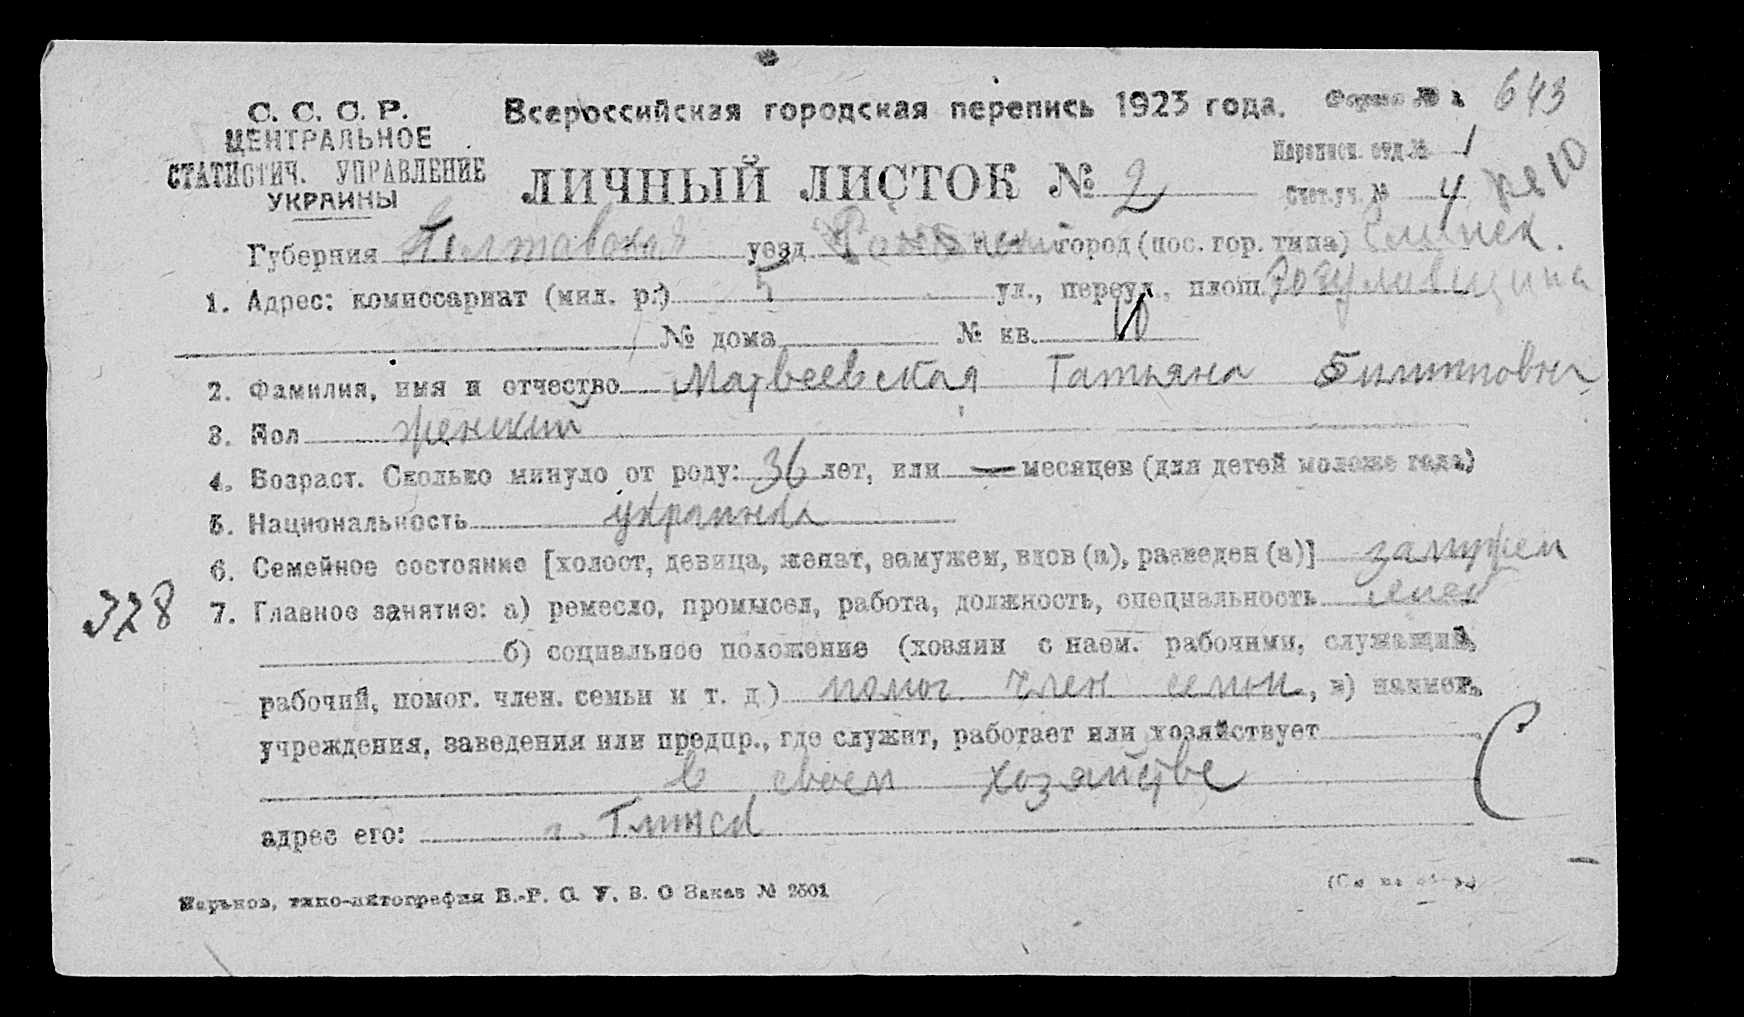 С. С. С. Р.
ЦЕНТРАЛЬНОЕ
СТАТИСТИЧ. УПРАВЛЕНИЕ
УКРАИНЫ
Всероссийская городская перепись 1923 года.
Форма № 1 643
ЛИЧНЫЙ ЛИСТОК № 2
Переписн. отд. № 1
Счетн. уч. № 4
Губерния Полтавская уезд Роменский город (пос. гор. типа) Глинск.
1. Адрес: комиссариат (мил. р.) 5 ул., переул., площ.
№ дома № кв. 10
2. Фамилия, имя и отчество Матвеевская Татьяна Филипповна
3. Пол женский
4. Возраст. Сколько минуло от роду: 36 лет, или — месяцев (для детей моложе года)
5. Национальность украинка
6. Семейное состояние [холост, девица, женат, замужем, вдов (а), разведен (а)] замужем
328 7. Главное занятие: а) ремесло, промысел, работа, должность, специальность
б) социальное положение (хозяин с наем. рабочими, служащий,
рабочий, помог. член. семьи и т. д.) помог. член семьи, в) наимен.
учреждения, заведения или предпр., где служит, работает или хозяйствует
в своем хозяйстве
адрес его: г. Глинск
Харьков, типо-литография В.-Р. О. У. В. О Заказ № 2501